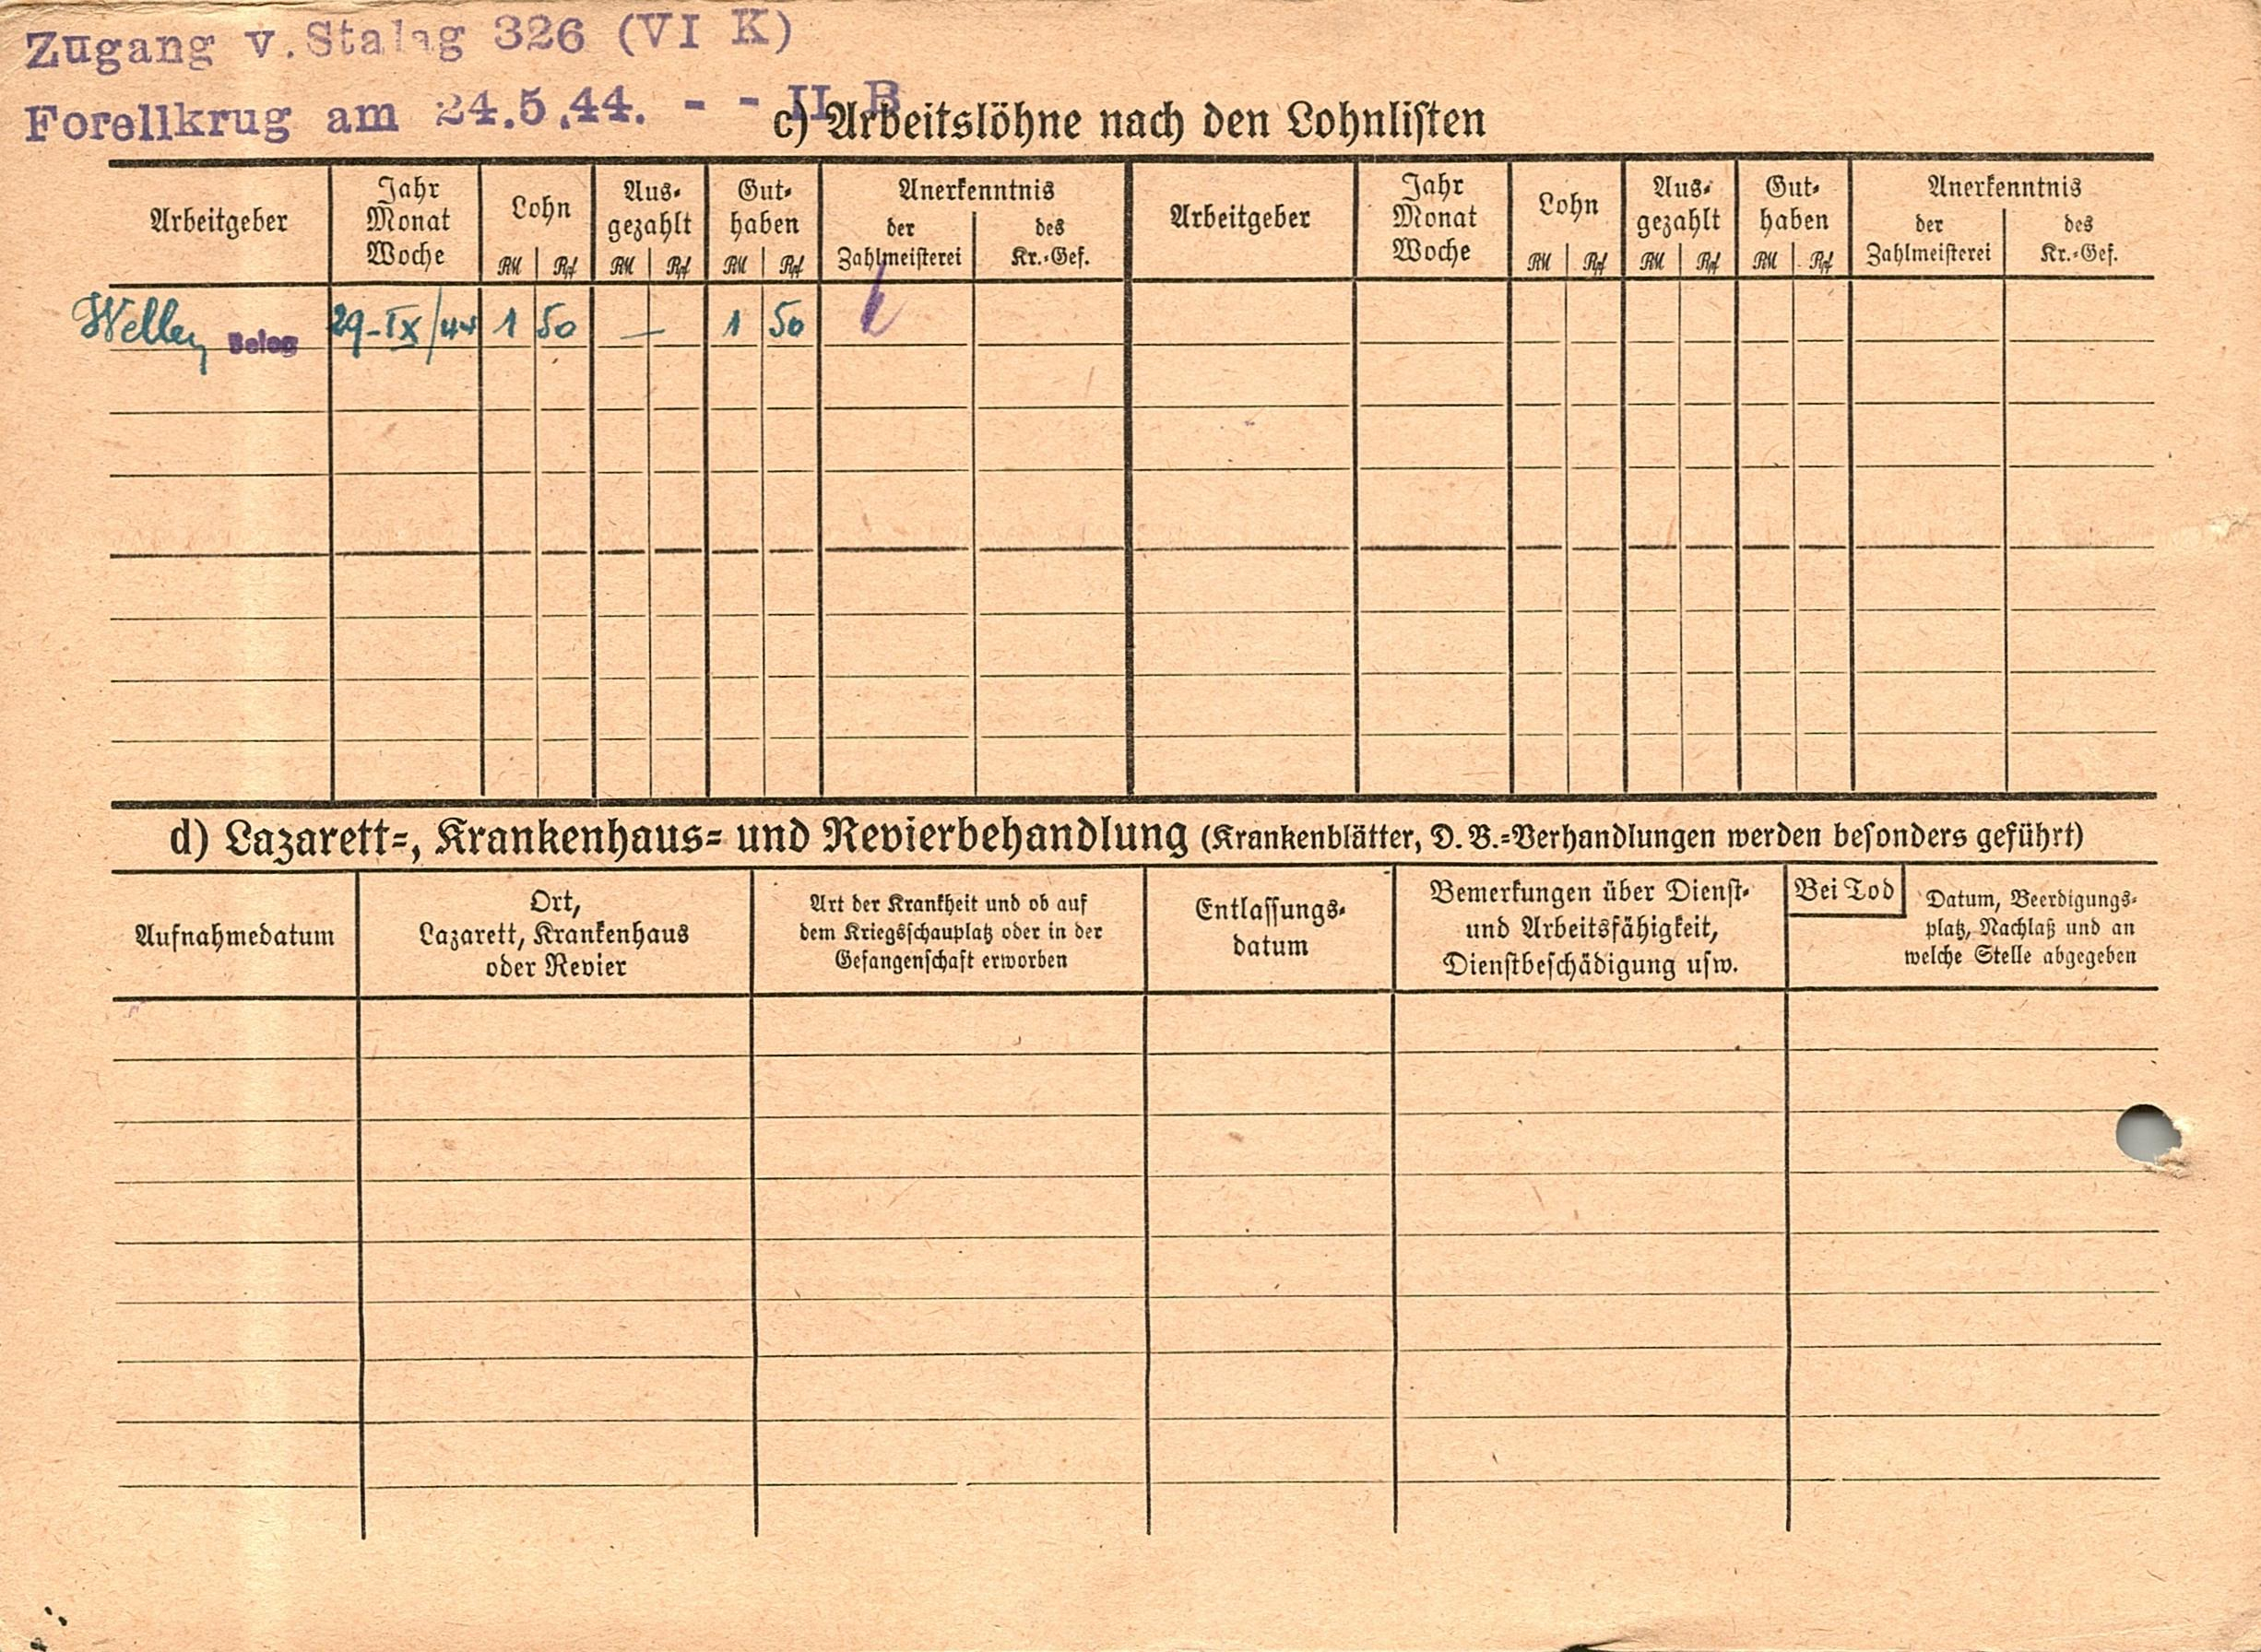 Zugang v. Stalag 326 (VI K)
Forellkrug am 24.5.44. - - II B
c) Arbeitslöhne nach den Lohnlisten
Arbeitgeber
Jahr
Monat
Woche
Lohn
RM Rpf
Aus-
gezahlt
RM Rpf
Gut-
haben
RM Rpf
Anerkenntnis
der
Zahlmeisterei
des
Kr.-Gef.
Arbeitgeber
Jahr
Monat
Woche
Lohn
RM Rpf
Aus-
gezahlt
RM Rpf
Gut-
haben
RM Rpf
Anerkenntnis
der
Zahlmeisterei
des
Kr.-Gef.
Beleg 29-IX/44 1 50 — 1 50
d) Lazarett-, Krankenhaus- und Revierbehandlung (Krankenblätter, D. B.-Verhandlungen werden besonders geführt)
Aufnahmedatum
Ort,
Lazarett, Krankenhaus
oder Revier
Art der Krankheit und ob auf
dem Kriegsschauplatz oder in der
Gefangenschaft erworben
Entlassungs-
datum
Bemerkungen über Dienst-
und Arbeitsfähigkeit,
Dienstbeschädigung usw.
Bei Tod
Datum, Beerdigungs-
platz, Nachlaß und an
welche Stelle abgegeben